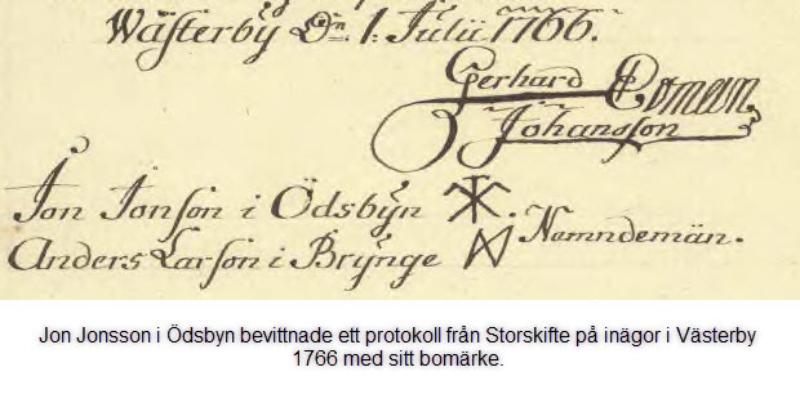 Wästerby Dn. 1. Julii 1766.
Gerhard
Johansson
Jon Jonson i Ödsbyn
Anders Larson i Brynge
Namndemän.
Jon Jonsson i Ödsbyn bevittnade ett protokoll från Storskifte på inägor i Västerby
1766 med sitt bomärke.